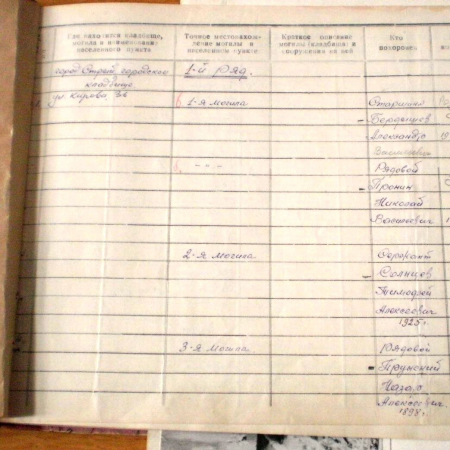 Где находится кладбище,
могила и наименование
населенного пункта
Точное местонахож-
дение могилы в
населенном пункте
Краткое описание
могилы (кладбища) и
сооружения на ней
Кто
похоронен
город Стрый городское
кладбище
1-й ряд.
ул. Кирова
1-я могила
Старший
Александр
Рядовой
Пронин
Николай
Васильевич
2-я могила
Сержант
Солнцев
Тимофей
Алексеевич
1925 г.
3-я могила
Рядовой
Алексеевич
1898 г.